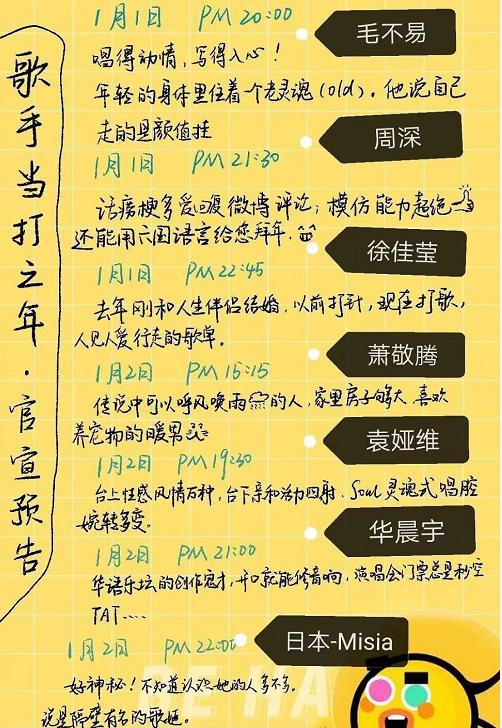 歌手当打之年·官宣预告
1月1日 PM 20:00
毛不易
唱得动情,写得入心!
年轻的身体里住着一个老灵魂(old)。他说自己
走的是颜值挂
周深
1月1日 PM 21:30
话痨梗多爱回复微博评论;模仿能力超绝
还能用六国语言给您拜年.
徐佳莹
1月1日 PM 22:45
去年刚和人生伴侣结婚,以前打针,现在打歌,
人见人爱行走的歌单。
萧敬腾
1月2日 PM 15:15
传说中可以呼风唤雨的人,家里房子够大 喜欢
养宠物的暖男
袁娅维
1月2日 PM 19:30
台上性感风情万种,台下亲和活力四射.Soul灵魂式唱腔
婉转多变。
华晨宇
1月2日 PM 21:00
华语乐坛的创作鬼才,开口就能修音响,演唱会门票总是秒空
TAT....
日本-Misia
1月2日 PM 22:00
好神秘!不知道认识她的人多不多。
说是隔壁有名的歌姬。